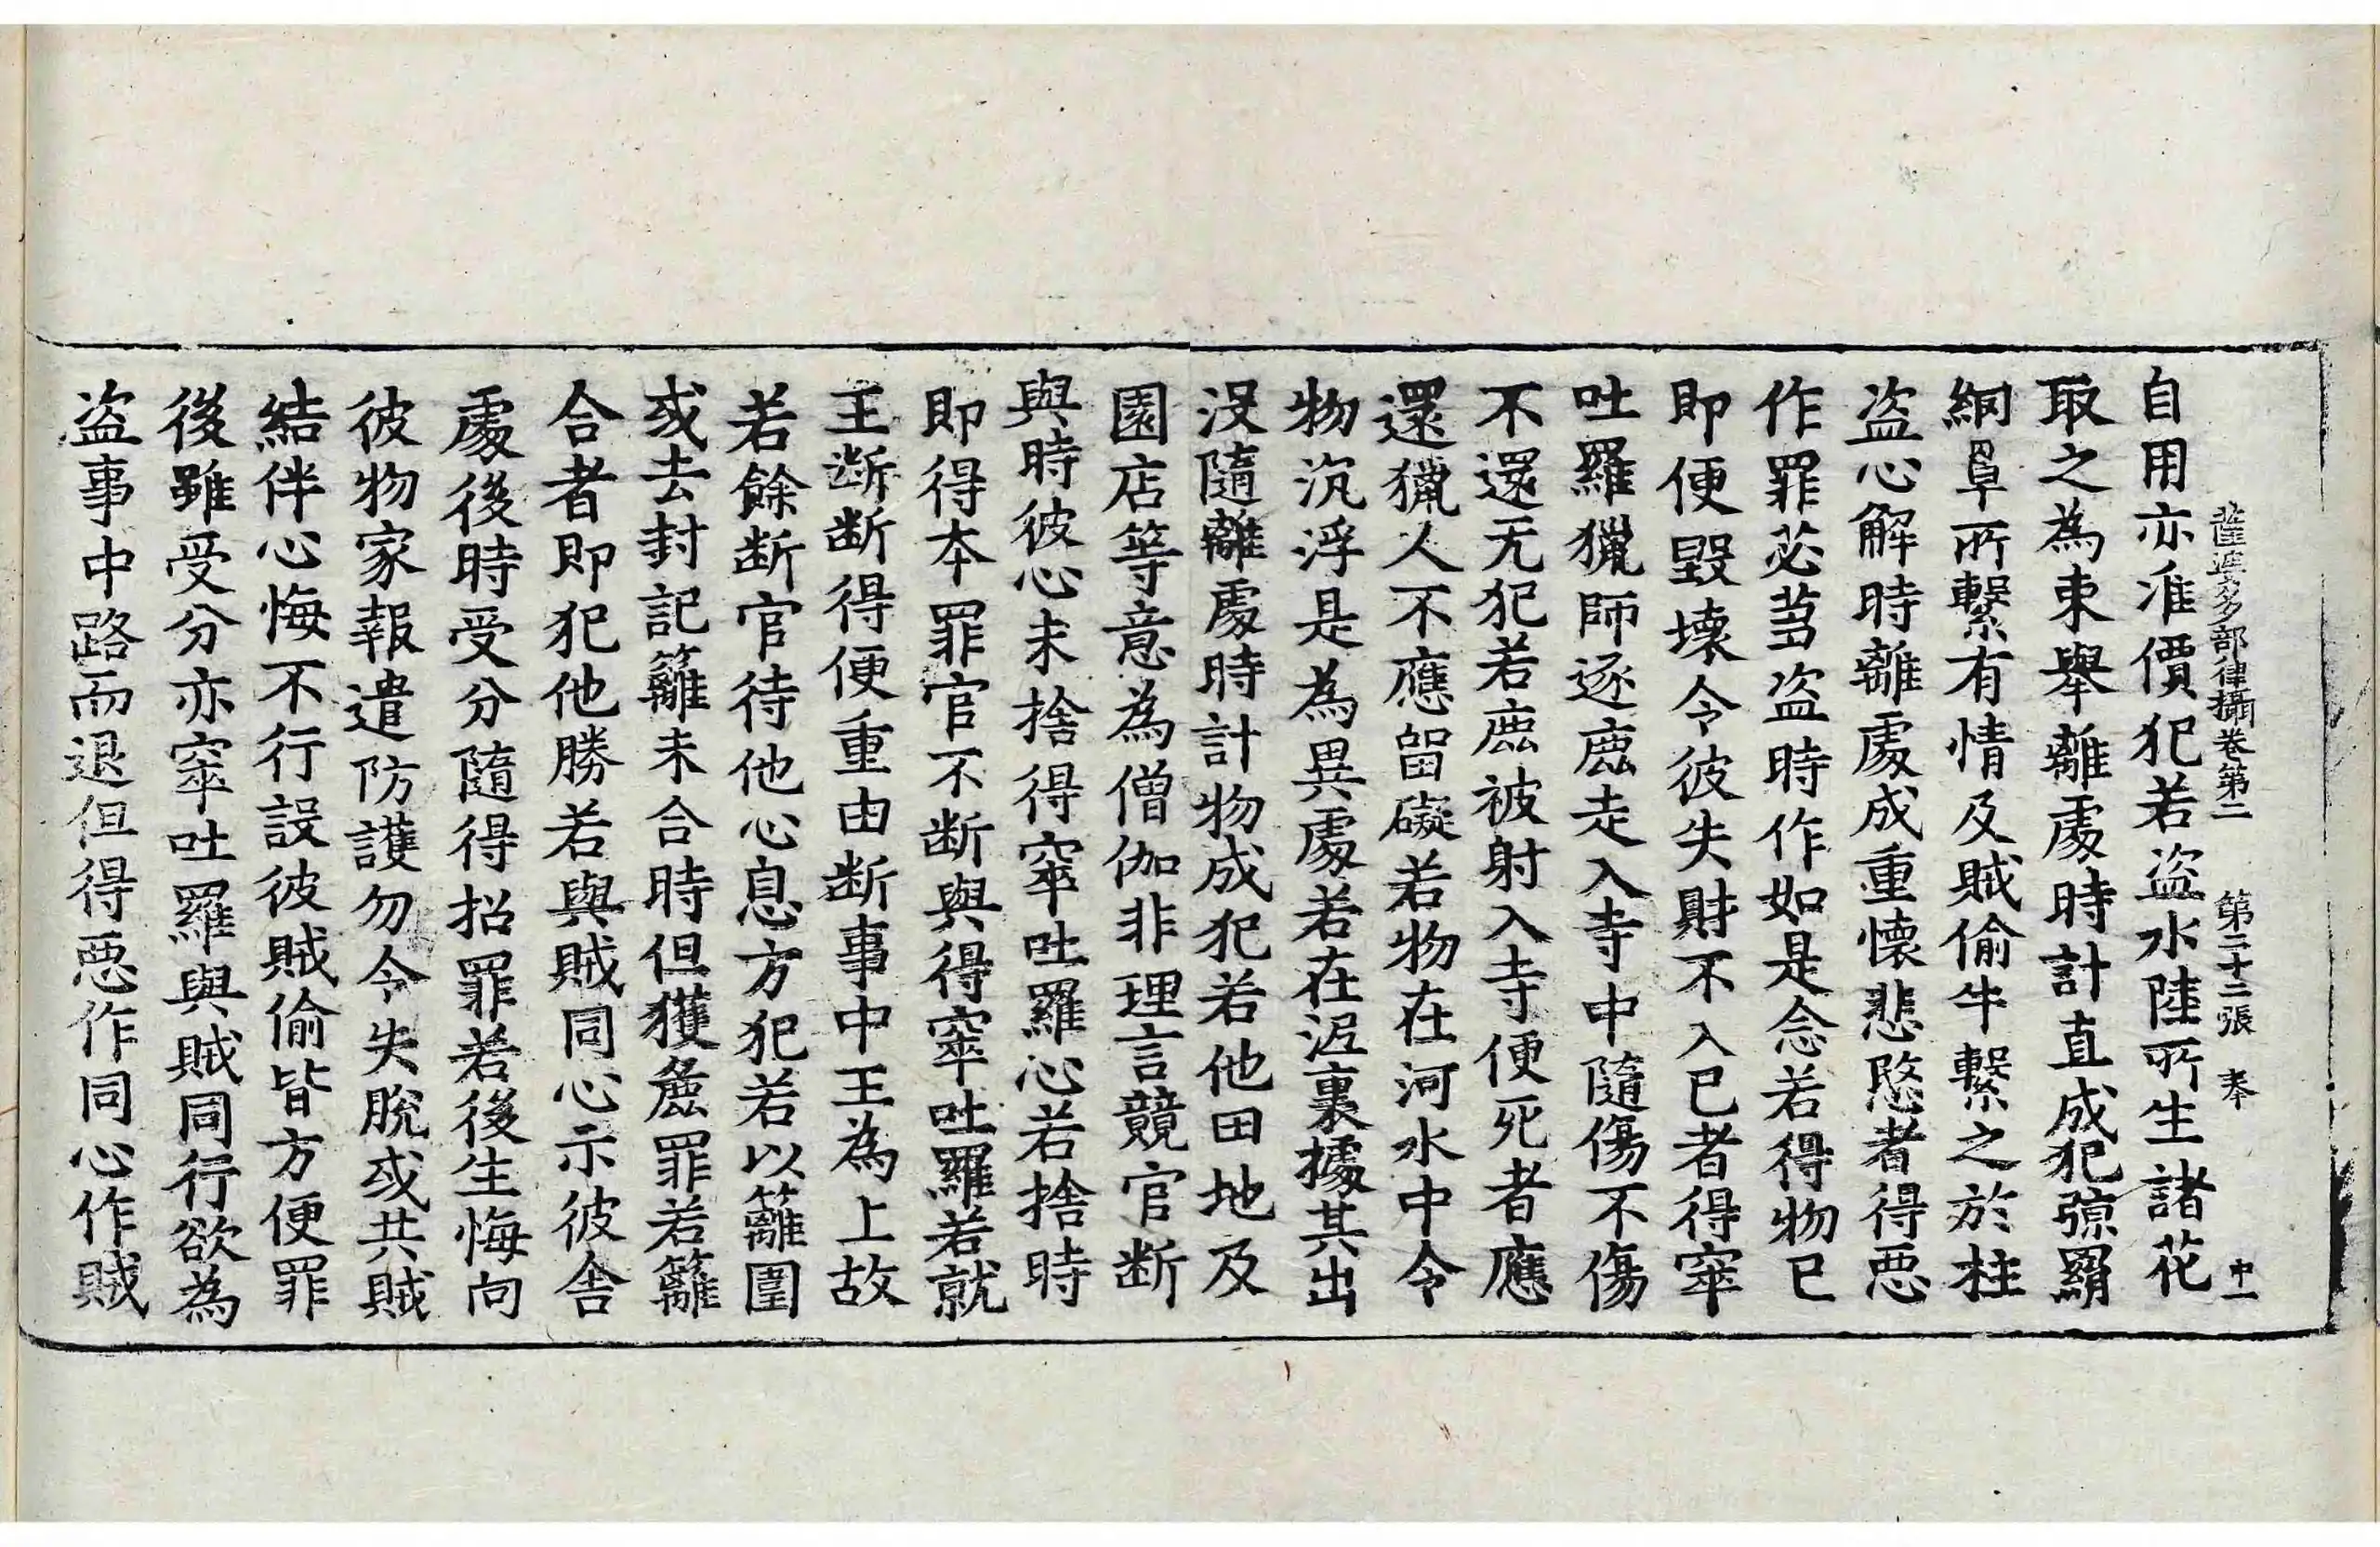 薩婆多部律攝卷第二 第二十二張 奉 中一
自用亦准價犯若盜水陸所生諸花
取之為束舉離處時計直成犯弶羂
網罩所繫有情及賊偷牛繫之於柱
盜心解時離處成重懷悲愍者得惡
作罪苾芻盜時作如是念若得物已
即便毀壞令彼失財不入已者得窣
吐羅獵師逐鹿走入寺中隨傷不傷
不還无犯若鹿被射入寺便死者應
還獵人不應留礙若物在河水中令
物沉浮是為異處若在泥裏據其出
沒隨離處時計物成犯若他田地及
園店等意為僧伽非理言競官断
與時彼心未捨得窣吐羅心若捨時
即得本罪官不断與得窣吐羅若就
王断断得便重由断事中王為上故
若餘断官待他心息方犯若以籬圍
或去封記籬未合時但獲麁罪若籬
合者即犯他勝若與賊同心示彼舍
處後時受分隨得招罪若後生悔向
彼物家報遣防護勿令失脫或共賊
結伴心悔不行設彼賊偷皆方便罪
後雖受分亦窣吐羅與賊同行欲為
盜事中路而退但得惡作同心作賊